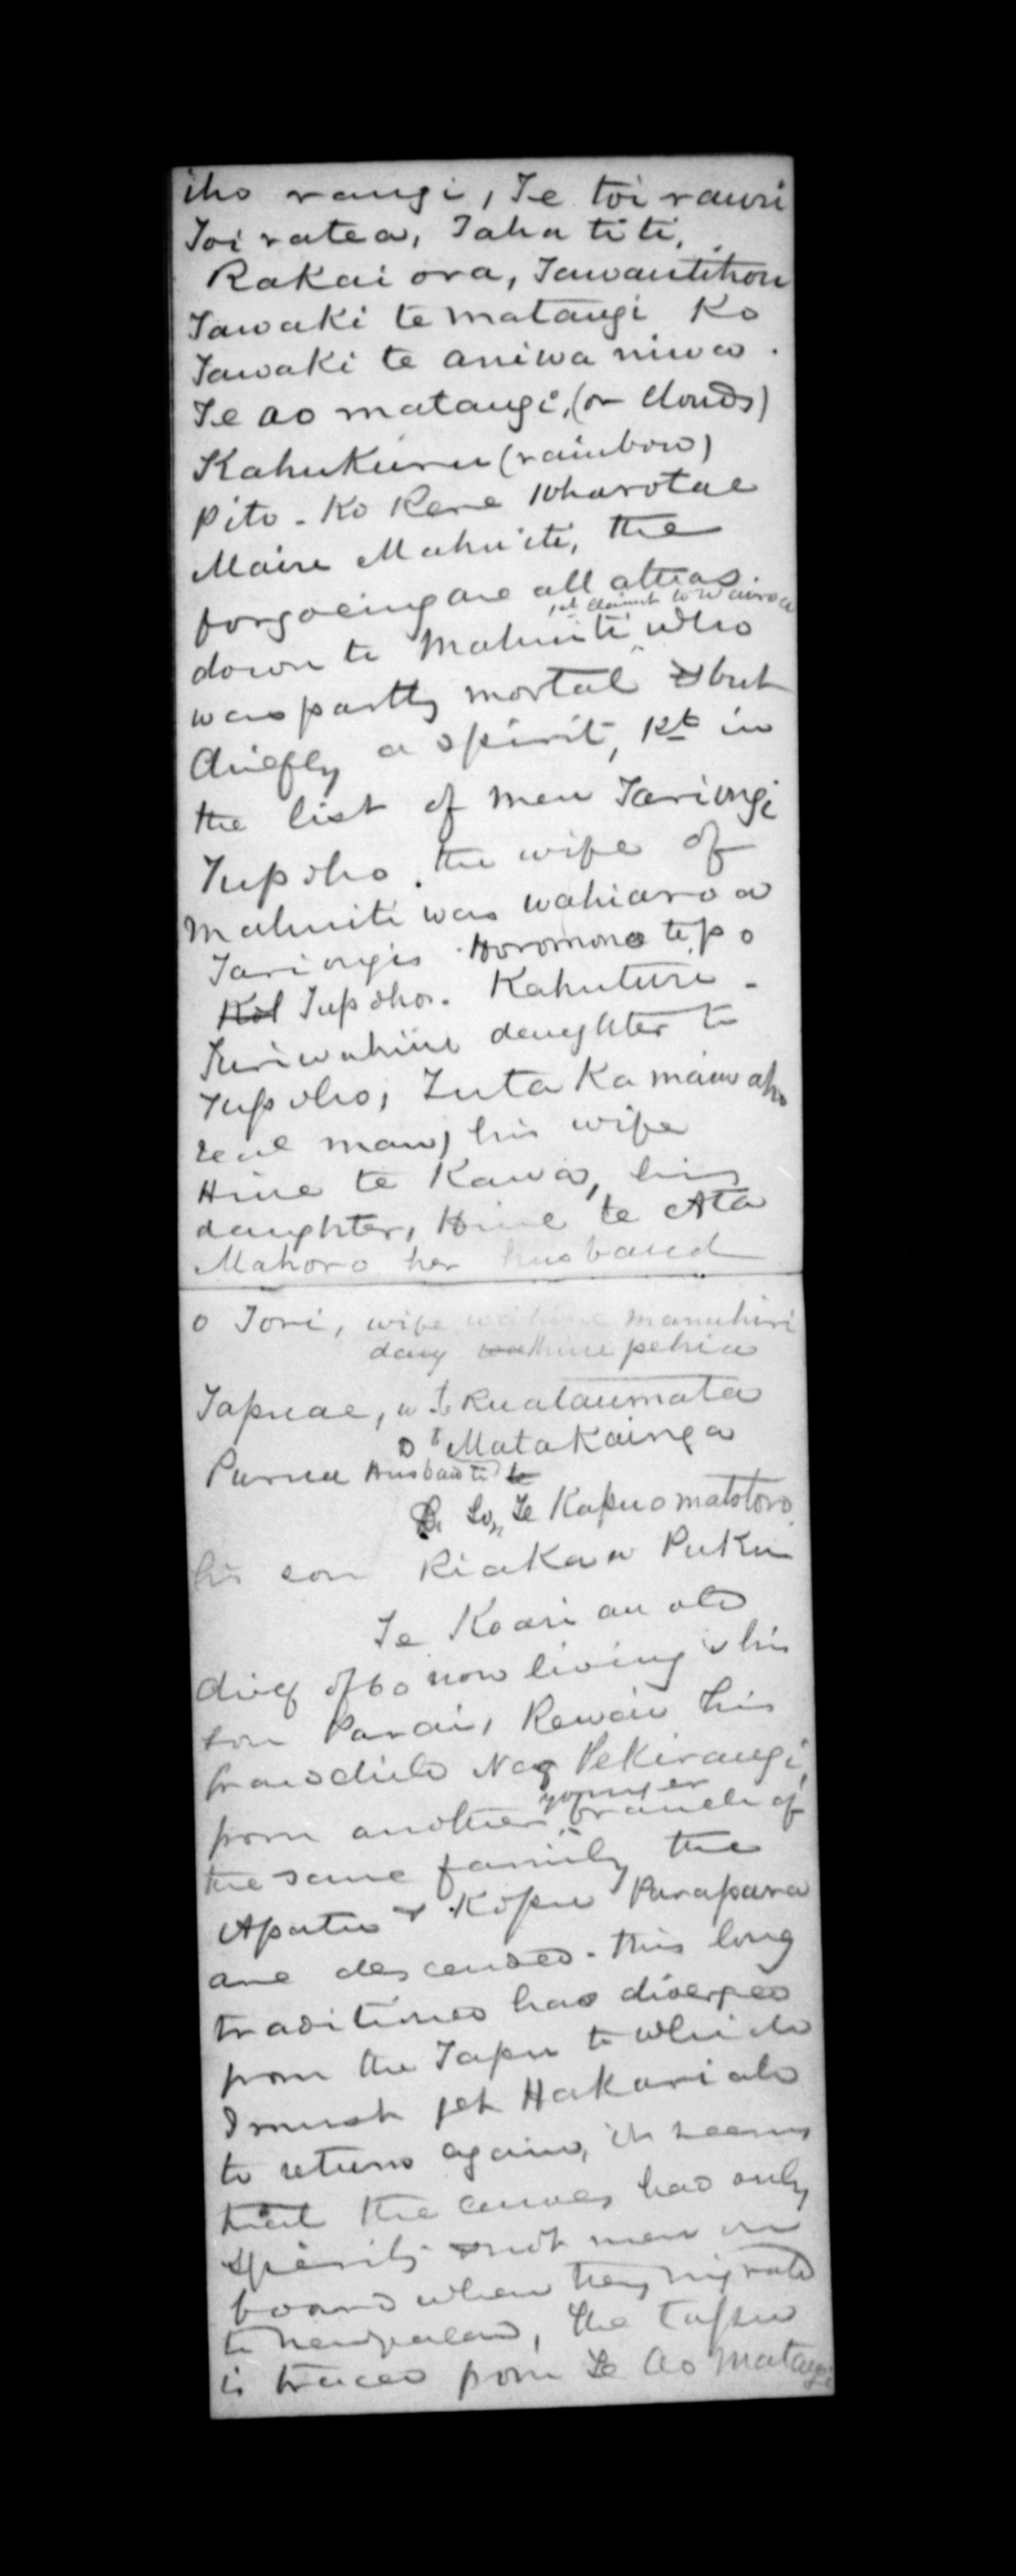 iho rangi, Te toi rauri
Toi ratea, Taha titi,
Rakai ora, Tawantihou
Tawaki te matangi Ko
Tawaki te aniwa niwa.
Te ao matangi, (or Clouds)
Kahukuru (rainbow)
Pito - Ko Rere Wharotae
Maire Mahu iti, the
forgoeing are all atuas.
1st claimt to Wairoa
down to Mahuiti who
was partly mortal but
chiefly a spirit, 1st in
the list of men Tariongi
Tupoho. the wife of
Mahuiti was wahiaroa
Tariongis Horomona te po
Kol Tupohos. Kahuturi -
Turiwahine daughter to
Tupoho, Tuta Ka mauwaho
real man, his wife
Hine te Kawa, his
daughter, Hine te Ata
Mahoro her husband
o Tori, wife wahine manuhiri
daug hine pehia
Tapuae, w to Ruataumata
D to Matakainga
Purua Husband to
So, Te Kapuomatotoro
his son Riakawa Puku
Te Koari an old
chief of 60 now living & his
son Parai, Rewai his
grandchild Nag Pekirangi,
younger
from another branch of
the same family the
Apatu & Kopu Parapara
are descended. this long
traditions has diverged
from the Tapu to which
I must get Hakariah
to return again, it seems
that the canoes had only
spirits not men on
board when they migrated
to New Zealand, the tapu
is traced from Te Ao Matangi